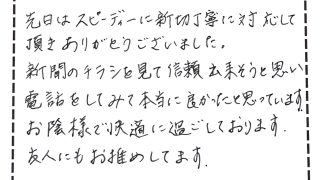 先日はスピーディーに新切丁寧に対応して
頂きありがとうございました。
新聞のチラシを見て信頼出来そうと思い
電話をしてみて本当に良かったと思っています。
お陰様で快適に過ごしております.
友人にもお推めしてます.